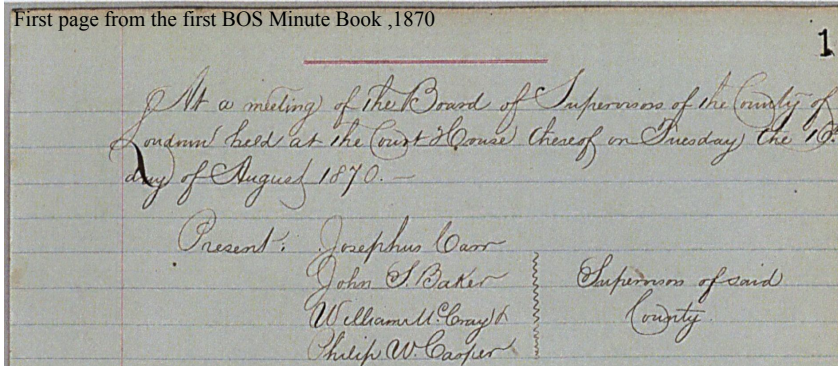 First page from the first BOS Minute Book ,1870
1
At a meeting of the Board of Supervisors of the County of
Loudoun held at the Court House thereof on Tuesday the 16
day of August 1870. —
Present: Josephus Carr
John S. Baker
William McCray &
Philip W. Carper
Supervisors of said
County.